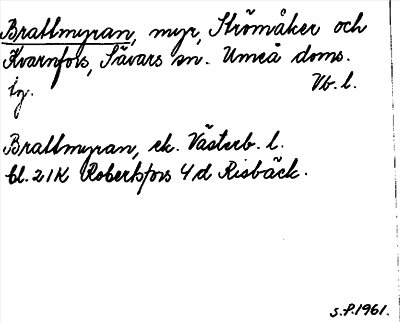 Brattmyran, myr, Strömåker och
Kvarnfors, Sävars sn. Umeå doms.
tg. Vb. l.
Brattmyran, ek. Västerb. l.
bl. 21K Robertsfors 4d Risbäck.
S.P.1961.